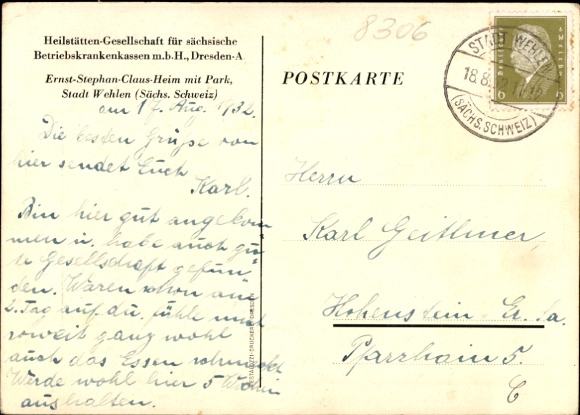 8306
Heilstätten-Gesellschaft für sächsische
Betriebskrankenkassen m.b.H., Dresden-A
Ernst-Stephan-Claus-Heim mit Park,
Stadt Wehlen (Sächs. Schweiz)
am 17. Aug. 1932.
Die besten Grüße von
hier sendet Euch
Karl.
Bin hier gut angekom
men u. habe auch gu-
te Gesellschaft gefun-
den. Waren schon am
2. Tag auf du. fühle mich
soweit ganz wohl
auch das Essen schmeckt
Werde wohl hier 5 Wochen
aushalten.
POSTKARTE
STADT WEHLEN
18.8.
(SÄCHS. SCHWEIZ)
6 6
Herrn
Karl Geithner,
Hohenstein-Er. Sa.
Pfarrhain 5.